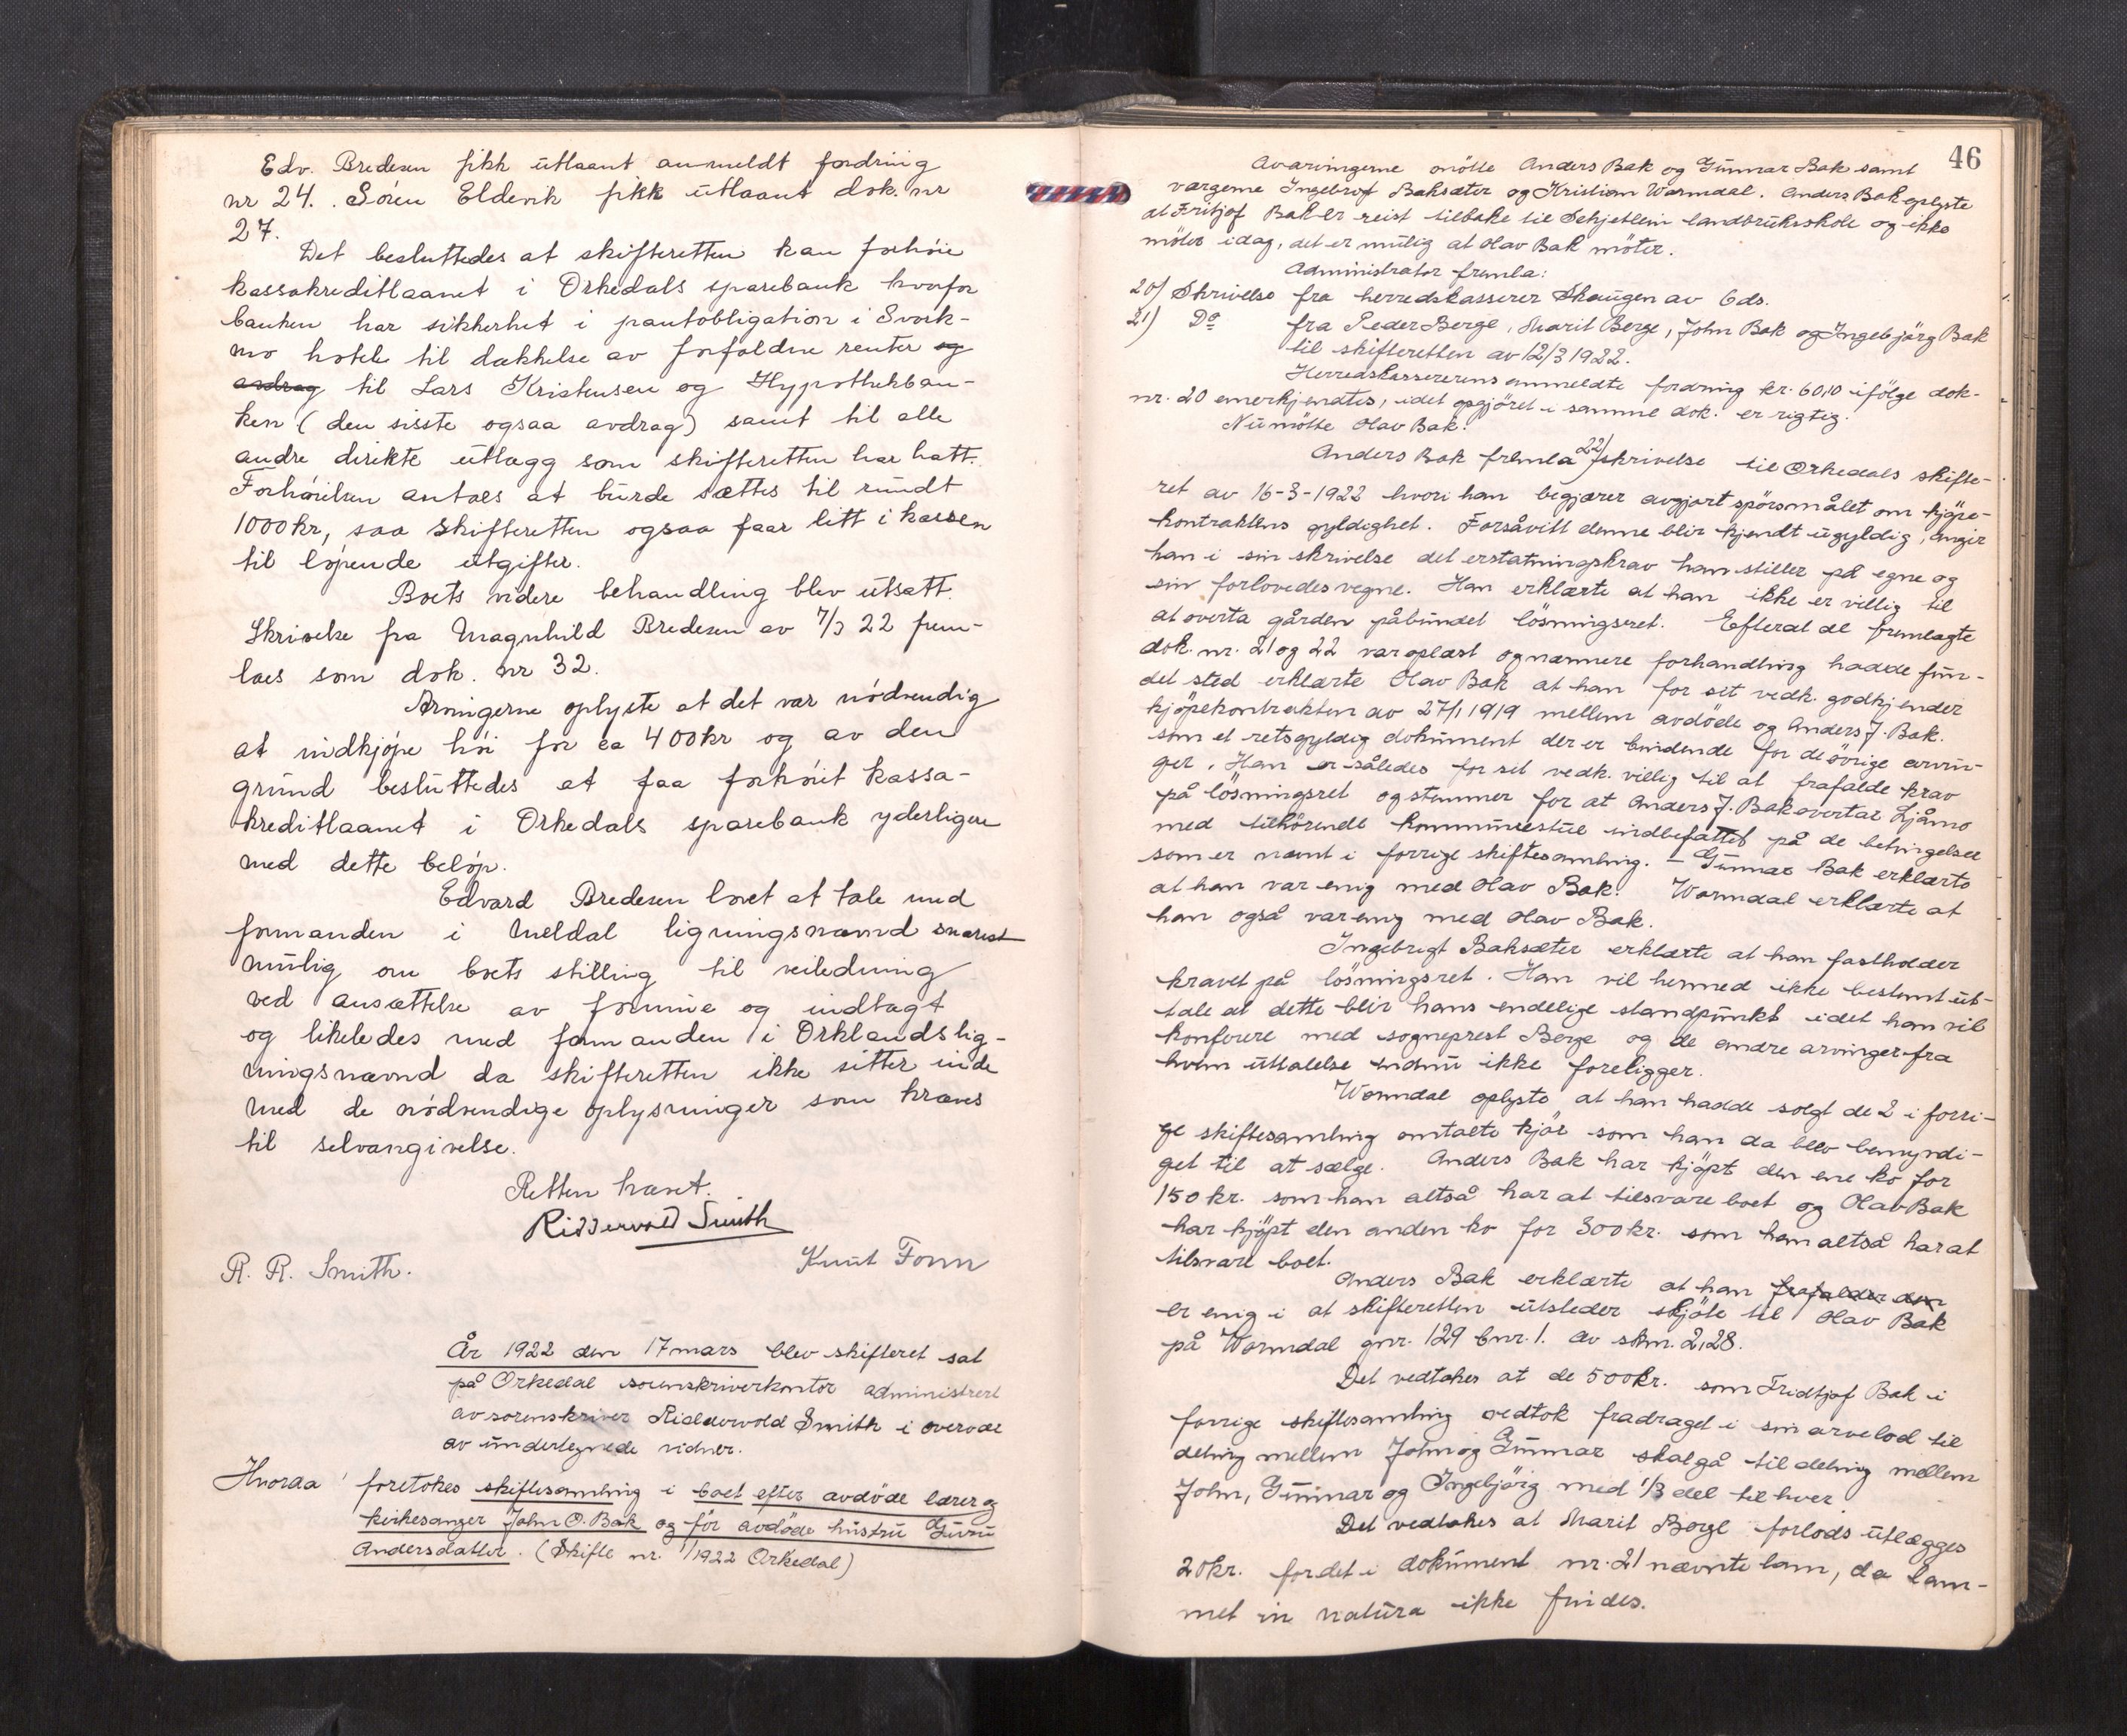 Edv. Bredesen fikk utlaant anmeldt fordring
nr 24. Sören Eldevik fikk utlaant dok. nr
27.
Det besluttedes at skifteretten kan forhöie
kassakreditlaanet i Orkedals sparebank hvorfor
banken har sikkerhet i pantobligation i Svork-
mo hotel til dækkelse av forfaldne renter og
avdrag til Lars Kristensen og Hypothekban-
ken (den sisste ogsaa avdrag) samt til alle
andre direkte utlægg som skifteretten har hatt.
Forhöielsen antoes at burde sættes til rundt
1000 kr, saa skifteretten ogsaa faar litt i kassen
til löpende utgifter.
Boets videre behandling blev utsatt.
Skrivelse fra Magnhild Bredesen av 7/3 22 frem-
laes som dok. nr 32.
Arvingerne oplyste at det var nödvendig
at indkjöpe höi for ca 400 kr og av den
grund besluttedes at faa forhöiet kassa-
kreditlaanet i Orkedals sparebank yderligere
med dette belöp.
Edvard Bredesen lovet at tale med
formanden i Meldal ligningsnævnd snarest
mulig om boets stilling til veiledning
ved ansættelse av formue og indtægt
og likeledes med formanden i Orklands lig-
ningsnævnd da skifteretten ikke sitter inde
med de nödvendige oplysninger som kræves
til selvangivelse.
Retten hævet.
Ridderwold Smith
R. R. Smith.
Knut Fonn
År 1922 den 17 mars blev skifteret sat
på Orkedal sorenskriverkontor administrert
av sorenskriver Ridderwold Smith i overvær
av undertegnede vidner.
Hvorda foretokes skiftesamling i boet efter avdöde lærer og
kirkesanger John O. Bak og för avdöde hustru Guru
Andersdatter. (Skifte nr. 1/1922 Orkedal)
46
Av arvingerne mötte Anders Bak og Gunnar Bak samt
værgerne Ingebrigt Baksæter og Kristian Wormdal. Anders Bak oplyste
at Fritjof Bak er reist tilbake til Skjetlein landbruksskole og ikke
möter idag, det er mulig at Olav Bak möter.
Administrator fremla:
20/ Skrivelse fra herredskasserer Skaugen av 6 ds.
21) Do fra Peder Berge, Marit Berge, John Bak og Ingebjörg Bak
til skifteretten av 12/3 1922.
Herredskassererens anmeldte fordring kr. 60,10 ifölge dok-
nr. 20 anerkjendtes, idet opgjöret i samme dok. er rigtig.
Nu mötte Olav Bak.
Anders Bak fremla 22/ skrivelse til Orkedals skifte-
ret av 16-3-1922 hvori han begjærer avgjort spörsmålet om kjöpe-
kontraktens gyldighet. Forsåvitt denne blir kjendt ugyldig, angir
han i sin skrivelse det erstatningskrav han stiller på egne og
sin forlovedes vegne. Han erklærte at han ikke er villig til
at overta gården påbundet lösningsret. Efterat de fremlagte
dok. nr. 21 og 22 var oplæst og nærmere forhandling hadde fun-
det sted erklærte Olav Bak at han for sit vedk. godkjender
kjöpekontrakten av 27/1 1919 mellem avdöde og Anders J. Bak.
som et retsgyldig dokument der er bindende for de övrige arvin-
ger. Han er således for sit vedk. villig til at frafalde krav
på lösningsret og stemmer for at Anders J. Bak overtar Ljåmo
med tilhörende kommunestue indbefattet på de betingelser
som er nævnt i forrige skiftesamling. – Gunnar Bak erklærte
at han var enig med Olav Bak. Wormdal erklærte at
han også var enig med Olav Bak.
Ingebrigt Baksæter erklærte at han fastholder
kravet på lösningsret. Han vil hermed ikke bestemt ut-
tale at dette blir hans endelige standpunkt idet han vil
konferere med sogneprest Berge og de andre arvinger fra
hvem uttalelse endnu ikke foreligger.
Wormdal oplyste at han hadde solgt de 2 i forri-
ge skiftesamling omtalte kjör som han da blev bemyndi-
get til at sælge. Anders Bak har kjöpt den ene ko for
150 kr. som han altså har at tilsvare boet og Olav Bak
har kjöpt den anden ko for 300 kr. som han altså har at
tilsvare boet.
Anders Bak erklærte at han frafalder den
er enig i at skifteretten utsteder skjöte til Olav Bak
på Wormdal gnr. 129 bnr. 1. av skm. 2,28.
Det vedtokes at de 500 kr. som Fridtjof Bak i
forrige skiftesamling vedtok fradraget i sin arvelod til
deling mellem John og Gunnar skal gå til deling mellem
John, Gunnar og Ingebjörg med 1/3 del til hver
Det vedtokes at Marit Berge forlods utlægges
20 kr. for det i dokument nr. 21 nævnte lam, da lam-
met in natura ikke findes.